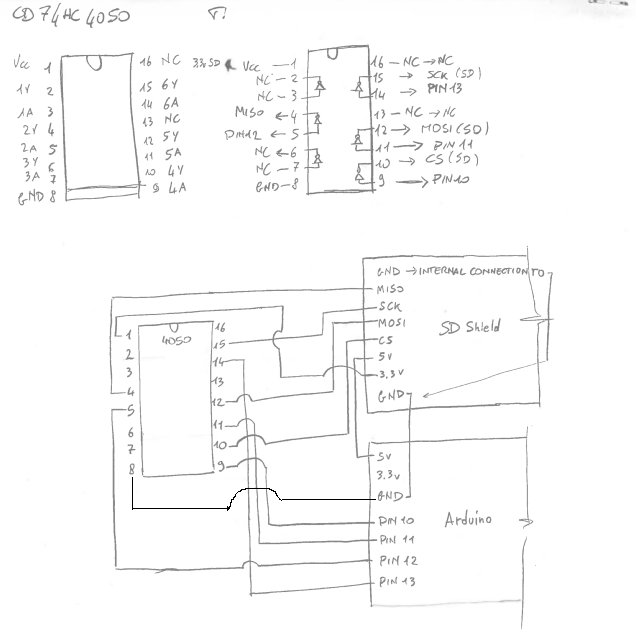 CD74HC4050
Vcc 1
1Y 2
1A 3
2Y 4
2A 5
3Y 6
3A 7
GND 8
16 NC
15 6Y
14 6A
13 NC
12 5Y
11 5A
10 4Y
9 4A
Vcc 1
NC 2
NC 3
MISO ← 4
PIN12 ← 5
NC ← 6
NC 7
GND 8
16 NC → NC
15 → SCK (SD)
14 → PIN 13
13 NC → NC
12 → MOSI (SD)
11 → PIN 11
10 → CS (SD)
9 → PIN 10
4050
1
2
3
4
5
6
7
8
16
15
14
13
12
11
10
9
GND → INTERNAL CONNECTION TO
MISO
SCK
MOSI
CS
5V
3.3V
GND
SD Shield
5V
3.3V
GND
PIN 10
PIN 11
PIN 12
PIN 13
Arduino